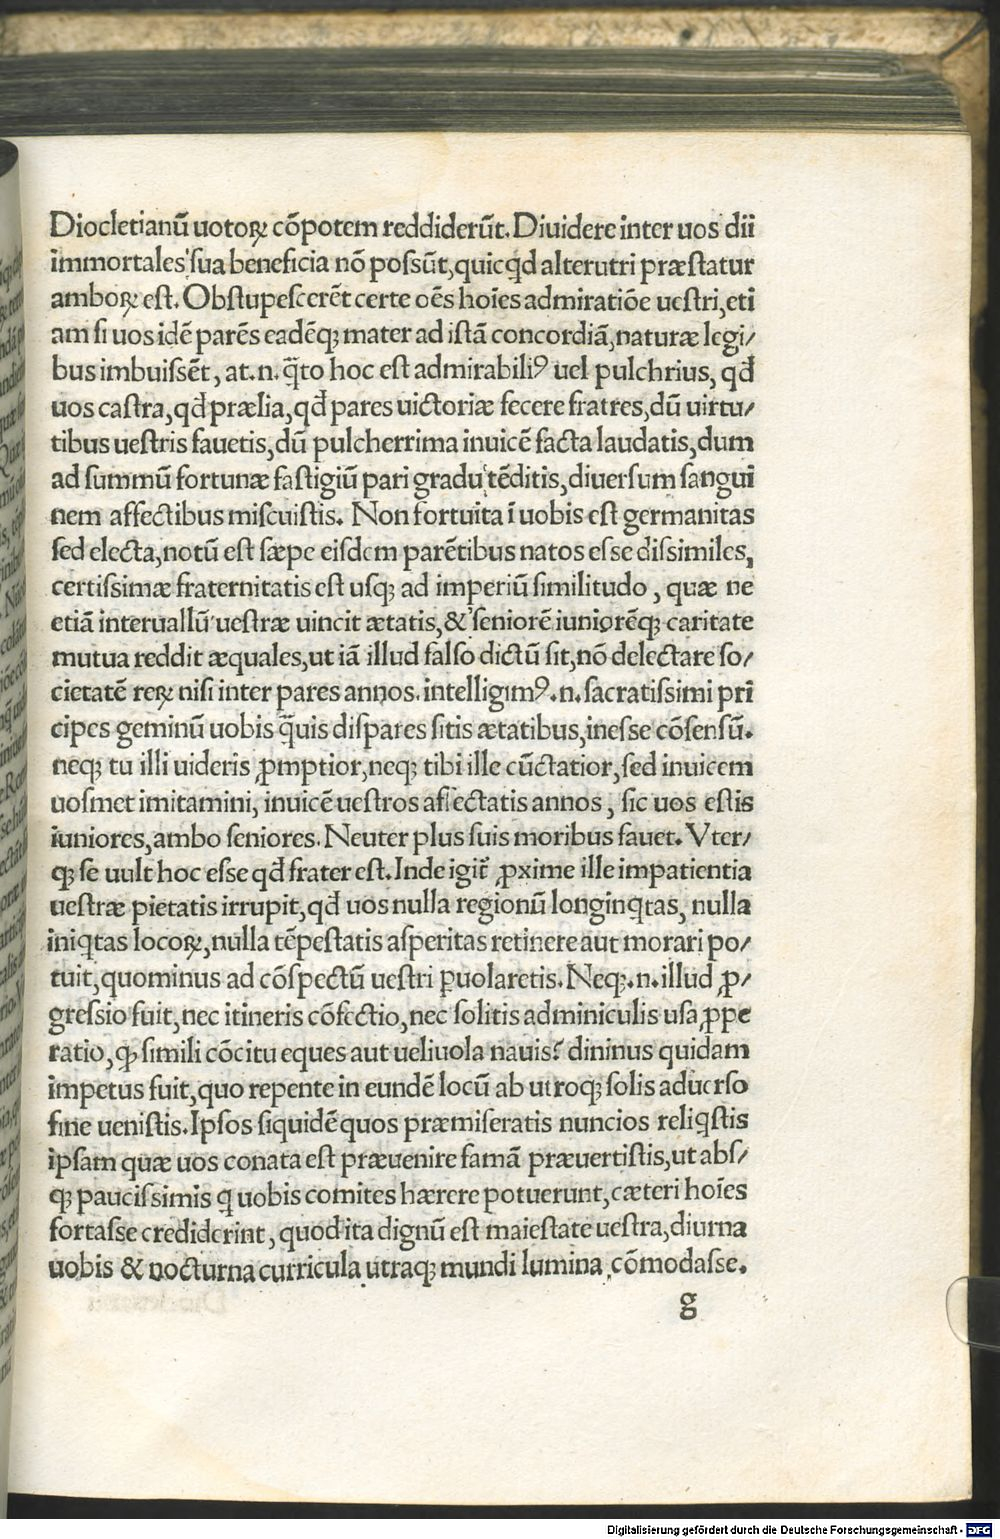 Diocletianū uotoꝝ cōpotem reddiderūt. Diuidere inter uos dii
immortales sua beneficia nō possūt, quicqd alterutri præstatur
amboꝝ est. Obstupescerēt certe oēs hoīes admiratiōe uestri, eti
am si uos idē parēs eadēqꝫ mater ad istā concordiā, naturæ legi/
bus imbuissēt, at .n. q̄to hoc est admirabiliꝰ uel pulchrius, qđ
uos castra, qđ prælia, qđ pares uictoriæ fecere fratres, dū uirtu/
tibus uestris fauetis, dū pulcherrima inuicē facta laudatis, dum
ad summū fortunæ fastigiū pari gradu tēditis, diuersum sangui
nem affectibus miscuistis. Non fortuita ī uobis est germanitas
sed electa, notū est sæpe eisdem parētibus natos esse dissimiles,
certissimæ fraternitatis est usqꝫ ad imperiū similitudo, quæ ne
etiā interuallū uestræ uincit ætatis, & seniorē iuniorēqꝫ caritate
mutua reddit æquales, ut iā illud falso dictū sit, nō delectare so/
cietatē reꝝ nisi inter pares annos. intelligimꝰ .n. sacratissimi pri
cipes geminū uobis q̄uis dispares sitis ætatibus, inesse cōsensū.
neqꝫ tu illi uideris ꝓmptior, neqꝫ tibi ille cūctatior, sed inuicem
uosmet imitamini, inuicē uestros affectatis annos, sic uos estis
iuniores, ambo seniores. Neuter plus suis moribus fauet. Vter/
qꝫ se uult hoc esse qđ frater est. Inde igit̄ ꝓxime ille impatientia
uestræ pietatis irrupit, qđ uos nulla regionū longinqtas, nulla
iniqtas locoꝝ, nulla tēpestatis asperitas retinere aut morari po/
tuit, quominus ad cōspectū uestri ꝑuolaretis. Neqꝫ .n. illud ꝓ/
gressio fuit, nec itineris cōfectio, nec solitis adminiculis usa ꝓpe
ratio, ꝙ simili cōcitu eques aut ueliuola nauis? dininus quidam
impetus fuit, quo repente in eundē locū ab utroqꝫ solis aduerso
fine uenistis. Ipsos siquidē quos præmiseratis nuncios reliqstis
ipsam quæ uos conata est præuenire famā præuertistis, ut abs/
qꝫ paucissimis q uobis comites hærere potuerunt, cæteri hoīes
fortasse crediderint, quod ita dignū est maiestate uestra, diurna
uobis & nocturna curricula utraqꝫ mundi lumina cōmodasse.
g
Digitalisierung gefördert durch die Deutsche Forschungsgemeinschaft - DFG